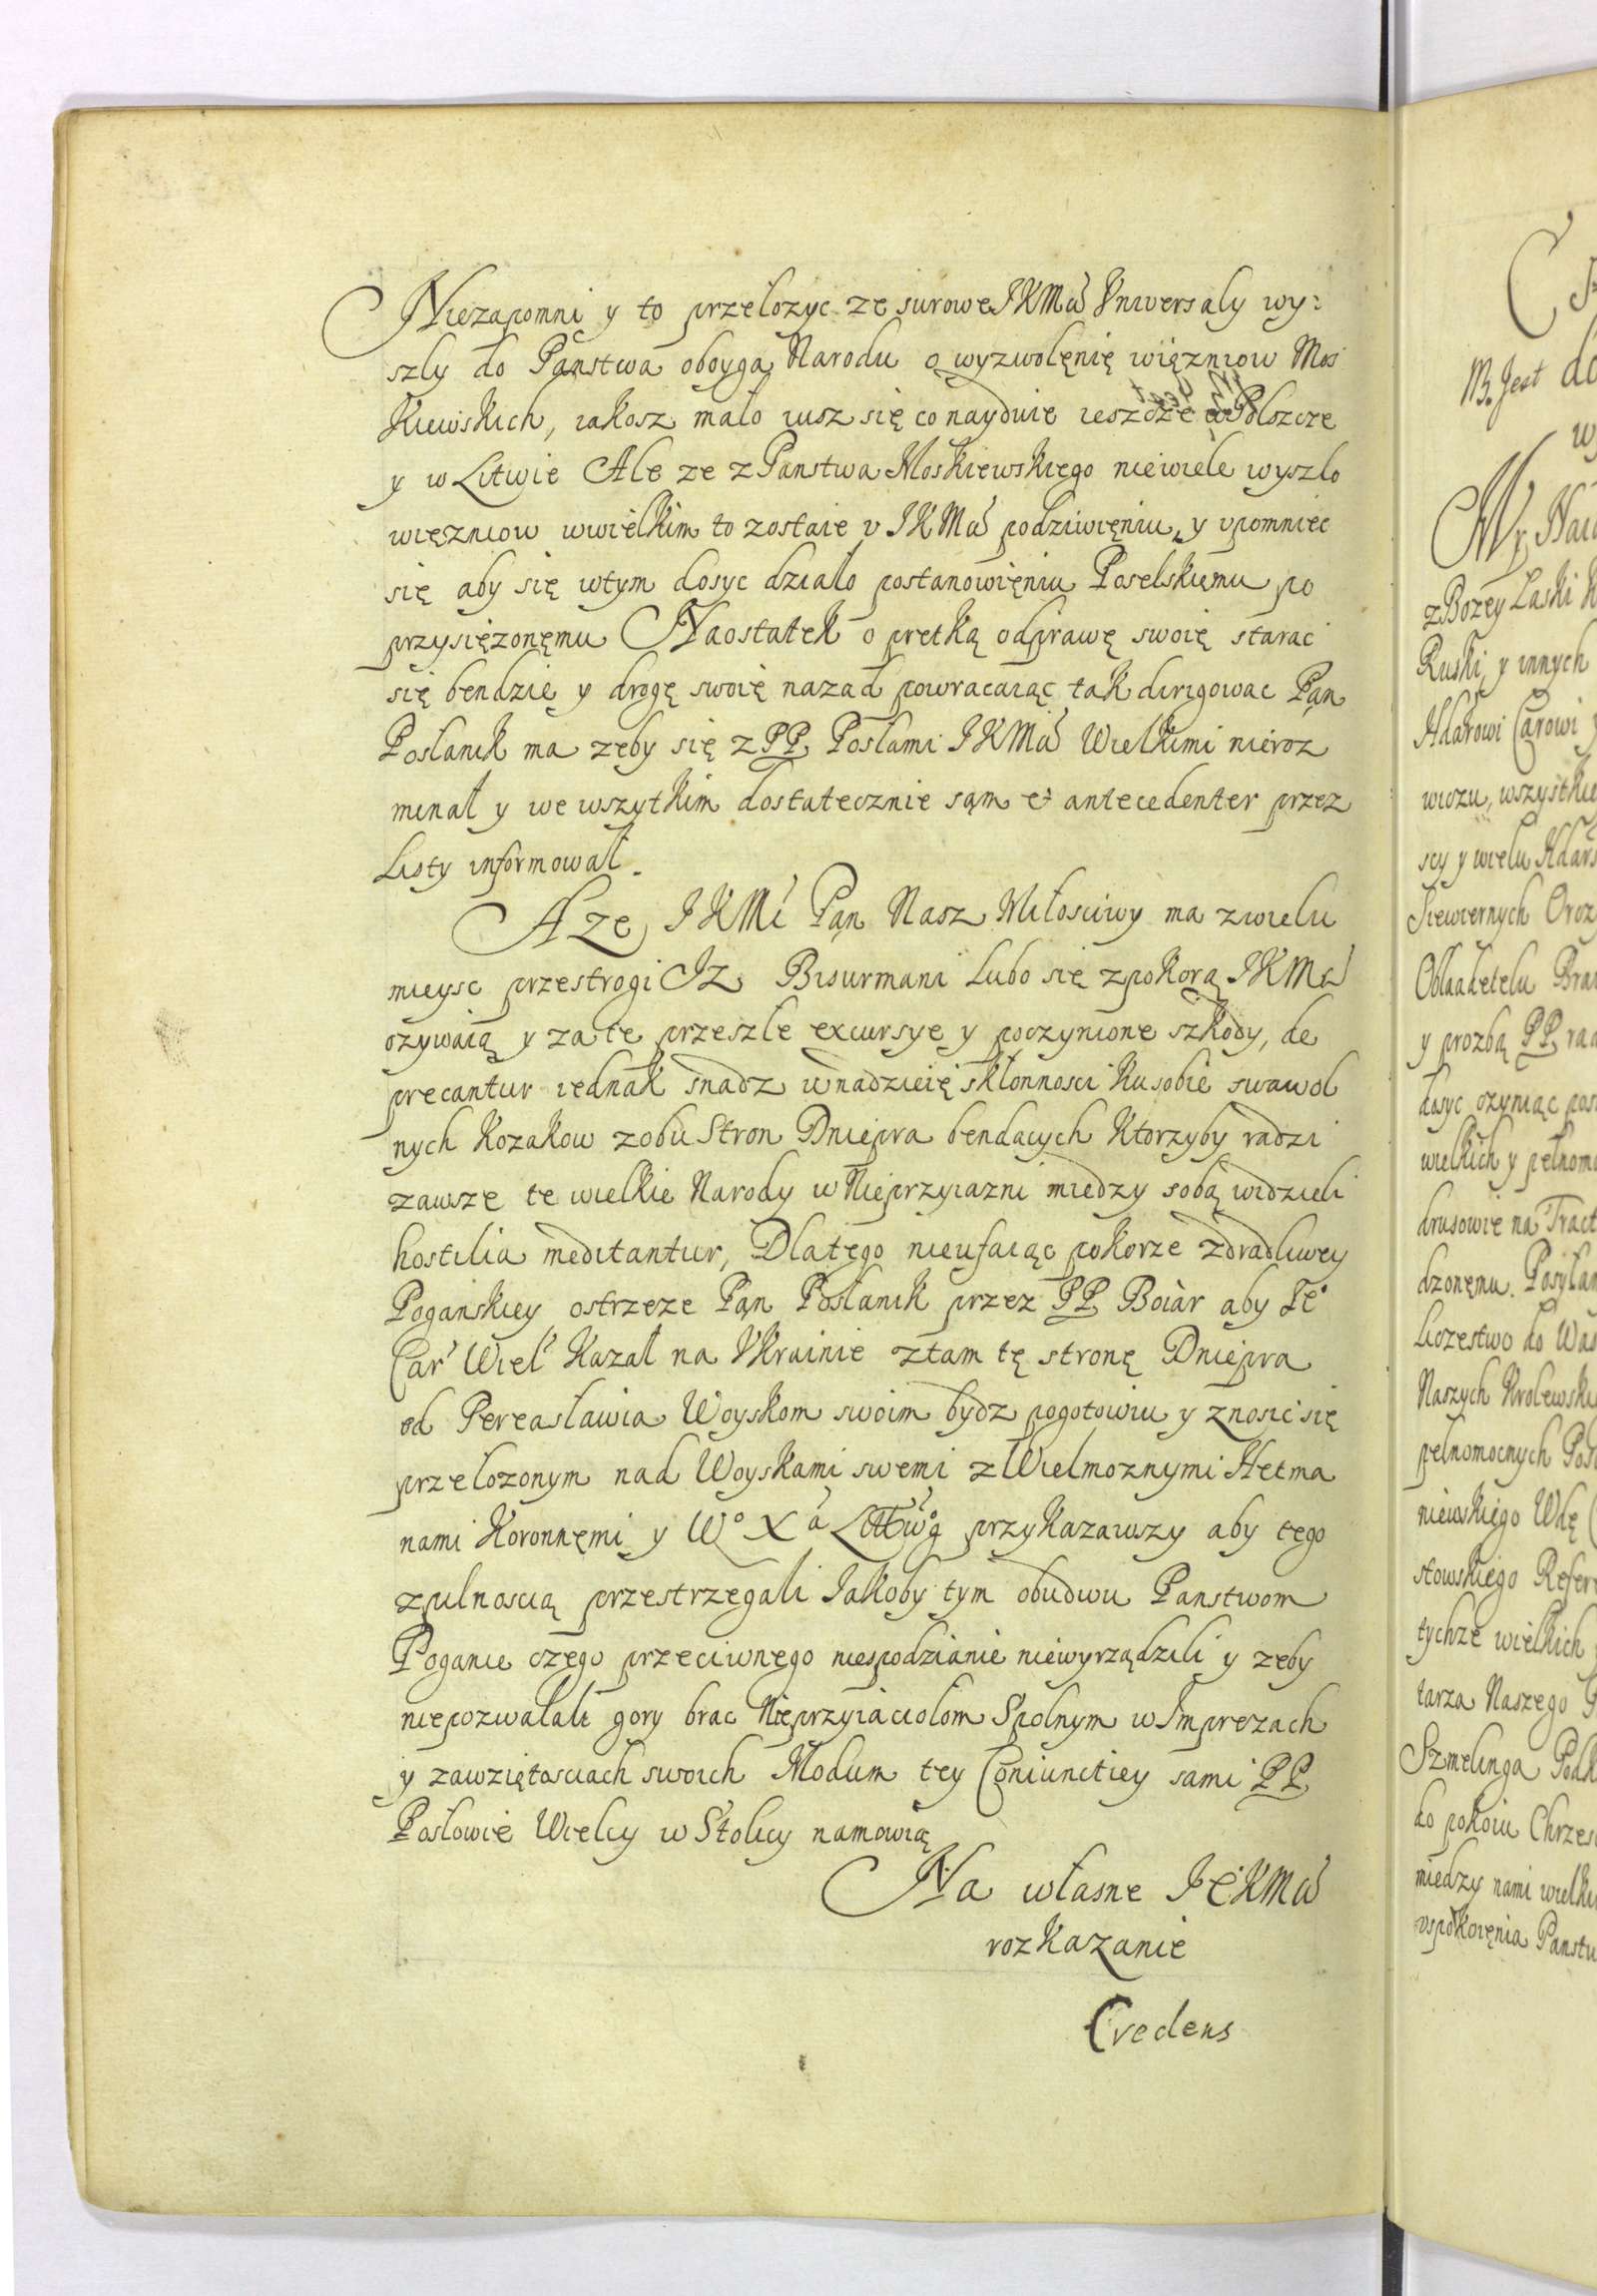 Niezapomni y to przelozyc ze surowe JKMći Vniversaly wy:
szly do Państwa oboyga Narodu o wyzwolęnię więzniow Mos
Kiewskich, iakosz malo iusz się co nayduie ieszcze w Polszcze
y w Litwie Ale ze z Panstwa Moskiewskiego niewiele wyszlo
więzniow wwielkim to zostaie v JKMći podziwięniu, y vpomniec
się aby się wtym dosyc dzialo postanowięniu Poselskiemu po
przysięzonęmu Naostatek o pretką odprawę swoię starac
się bendzie y drogę swoię nazad powracaiąc tak dirigowac Pąn
Poslanik ma zeby się z PP Poslami JKMći Wielkimi nieroz
minął y we wszytkim dostatecznie sąm et antecedenter przez
Listy informował.
A ze JKMć Pąn Nasz Miłosciwy ma zwielu
mieysc przestrogi Jz Bisurmani lubo się zpokorą JKMći
ozywaią y za te przeszle excursye y poczynione szkody, de
precantur iednak snadz wnadzieię skłonnosci ku sobie swawol
nych Kozakow zobu Stron Dniepra bendacych Ktorzyby radzi
zawsze te wielkie Narody w Nieprzyiazni miedzy sobą widzieli
hostilia meditantur, Dlatego nieufaiąc pokorze zdradliwey
Poganskiey ostrzeze Pąn Posłanik przez PP Boiàr aby Je°
Car Wiel Kazał na Vkrainie ztam tę stronę Dniepra
od Pereasławia Woyskom swoim bydz pogotowiu y znosic się
przelozonym nad Woyskami swemi z Wielmoznymi Hetma
nami Koronnęmi y W° Xá Littwo̊g przykazawszy aby tego
zpilnoscią przestrzegali Jakoby tym obudwu Panstwom
Poganie czego przeciwnego niespodzianie niewyrządzili y zeby
niepozwalali gory brac Nieprzyiaciolom Spolnym w Jmprezach
y zawziętosciach swoich Modum tey Coniunctiey sami PP
Poslowie Wielcy w Stolicy namowią
Na własne JeKMći
rozkazanie
Credens
M. Jest do
My
z Bozey Laski K
Ruski, y innych
Hdarowi Carowi y
wiczu, wszystkie
scy y wielu Hdars
Siewiernych Oroz
y prozbą PP rad
dosyc czyniąc pos
wielkich y pelnomo
drusowie na Tract
dzonęmu. Posylam
liczestwo do Was
Naszych Krolewski
pelnomocnych Posl
niewskiego Wdę
stowskiego Refere
tychze wielkich
tarza Naszego
Szmelinga Podk
do pokoiu Chrzes
miedzy nami wielki
vspokoięnia Panstw